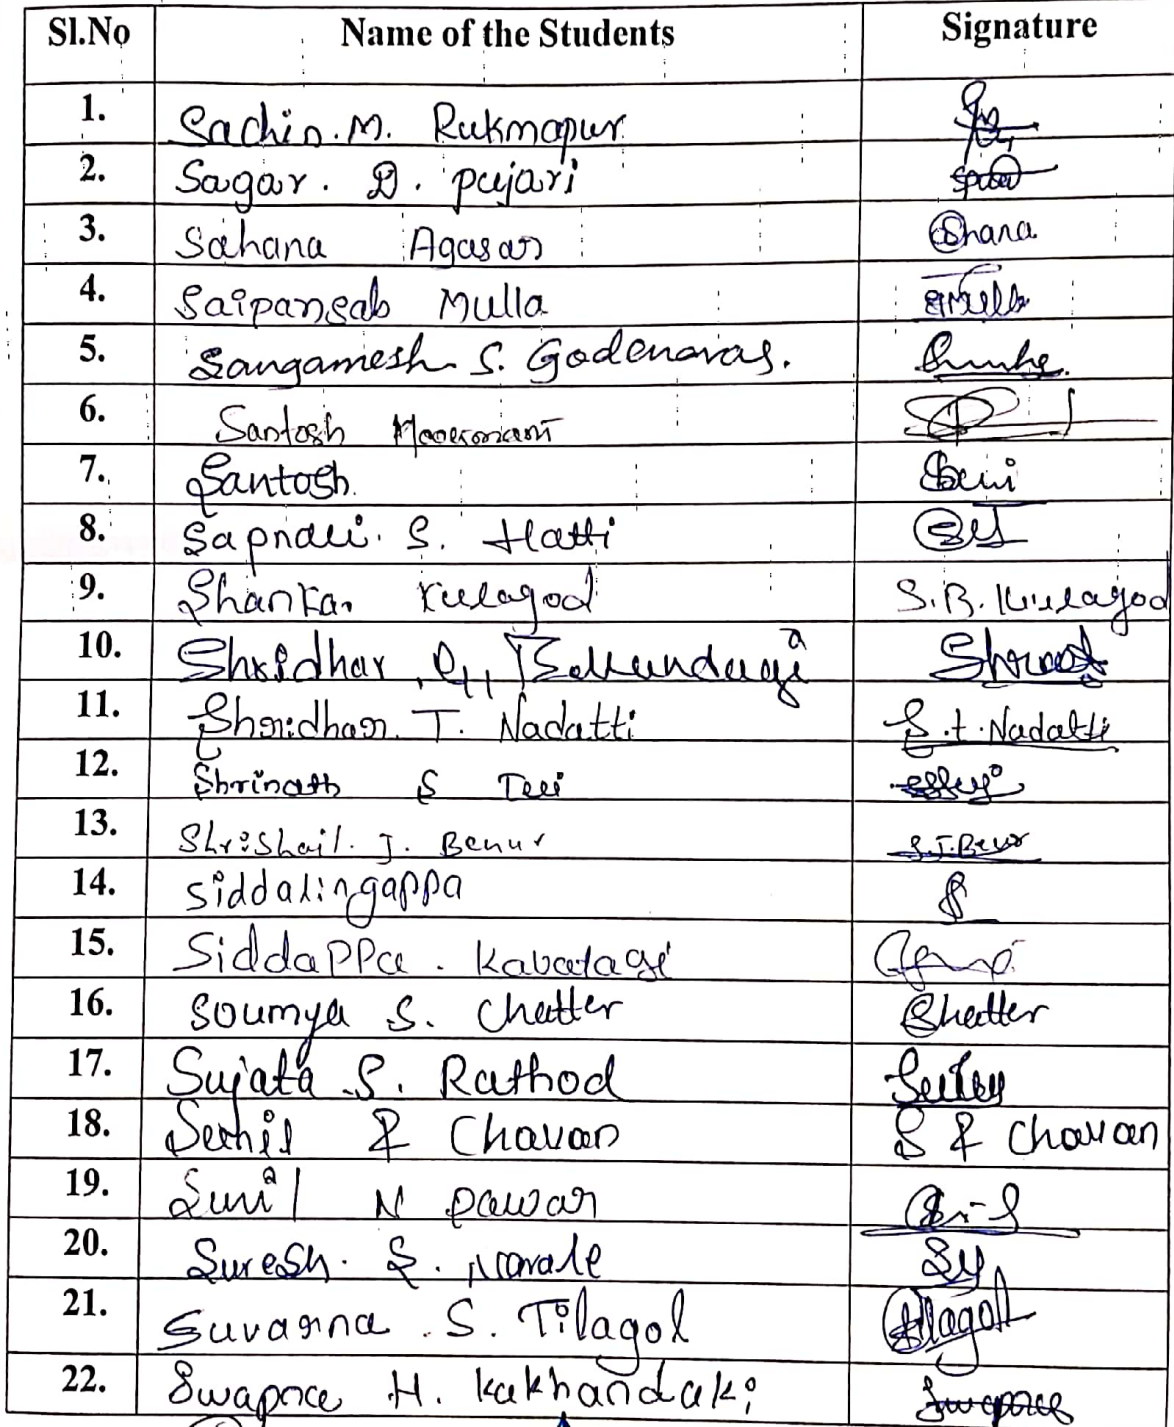 Sl.No Name of the Students Signature
1. Sachin. M. Rukmapur
2. Sagar. D. pujari
3. Sahana Agasar Shana
4. Saipansab Mulla SMulla
5. Sangamesh S. Godenavar.
6. Santosh
7. Santosh.
8. Sapnali. S. Hatti
9. Shankar Kulagod S.B. Kulagod
10. Shridhar
11. Shridhar T. Nadatti S.t. Nadatti
12. Shrinath S Teli
13. Shrishail. J. Benur S.J.Benur
14. Siddalingappa S
15. Siddappa. Kavatagi
16. Soumya S. Chatter Chatter
17. Sujata S. Rathod
18. Sunil R Chavan S R Chavan
19. Sunil N pawar
20. Suresh. S. Narale
21. Suvarna. S. Tilagol Tilagol
22. Swapna H. Kakhandaki Swapna